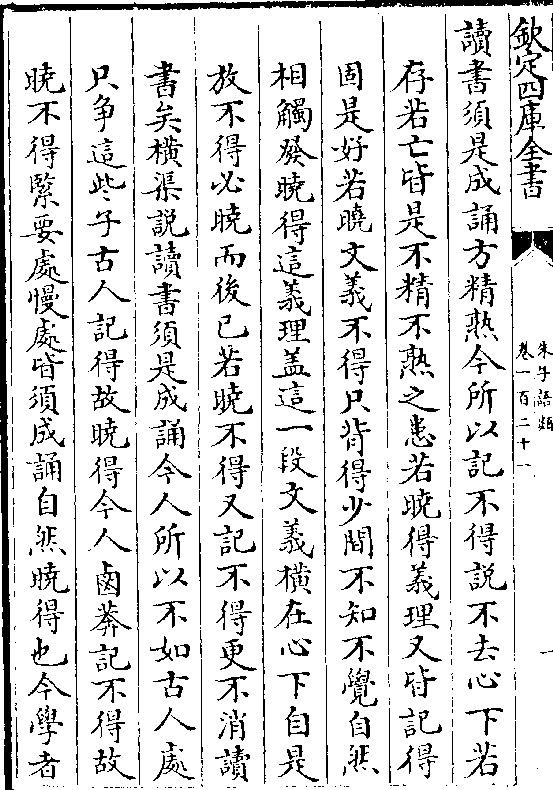 欽定四庫全書
朱子語類
卷一百二十一
讀書須是成誦方精熟今所以記不得説不去心下若
存若亡皆是不精不熟之患若曉得義理又皆記得
固是好若曉文義不得只背得少間不知不覺自然
相觸發曉得這義理盖這一段文義橫在心下自是
放不得必曉而後已若曉不得又記不得更不消讀
書矣横渠説讀書須是成誦今人所以不如古人處
只争這些子古人記得故曉得今人鹵莽記不得故
曉不得緊要處慢處皆須成誦自然曉得也今學者